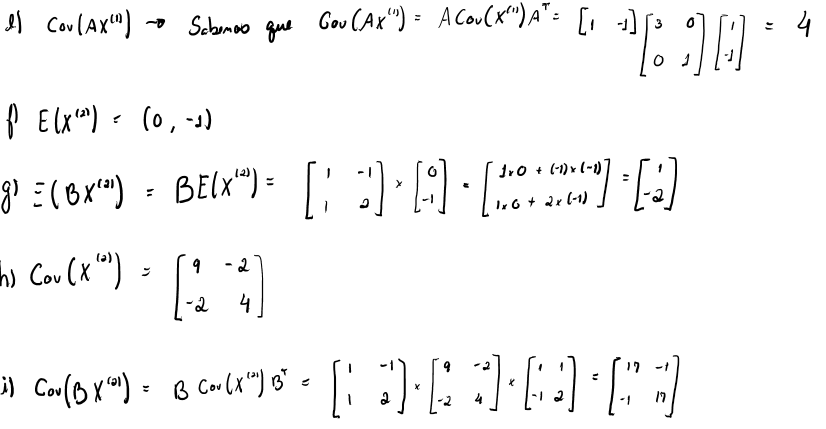 e) Cov(AX⁽¹⁾) → Sabemos que Cov(AX⁽¹⁾) = A Cov(X⁽¹⁾) Aᵀ = [1 -1] [3 0; 0 1] [1; -1] = 4
f) E(X⁽²⁾) = (0, -1)
g) E(BX⁽²⁾) = BE(X⁽²⁾) = [1 -1; 1 2] × [0; -1] = [1×0 + (-1)×(-1); 1×0 + 2×(-1)] = [1; -2]
h) Cov(X⁽²⁾) = [9 -2; -2 4]
i) Cov(BX⁽²⁾) = B Cov(X⁽²⁾) Bᵀ = [1 -1; 1 2] × [9 -2; -2 4] × [1 1; -1 2] = [17 -1; -1 17]